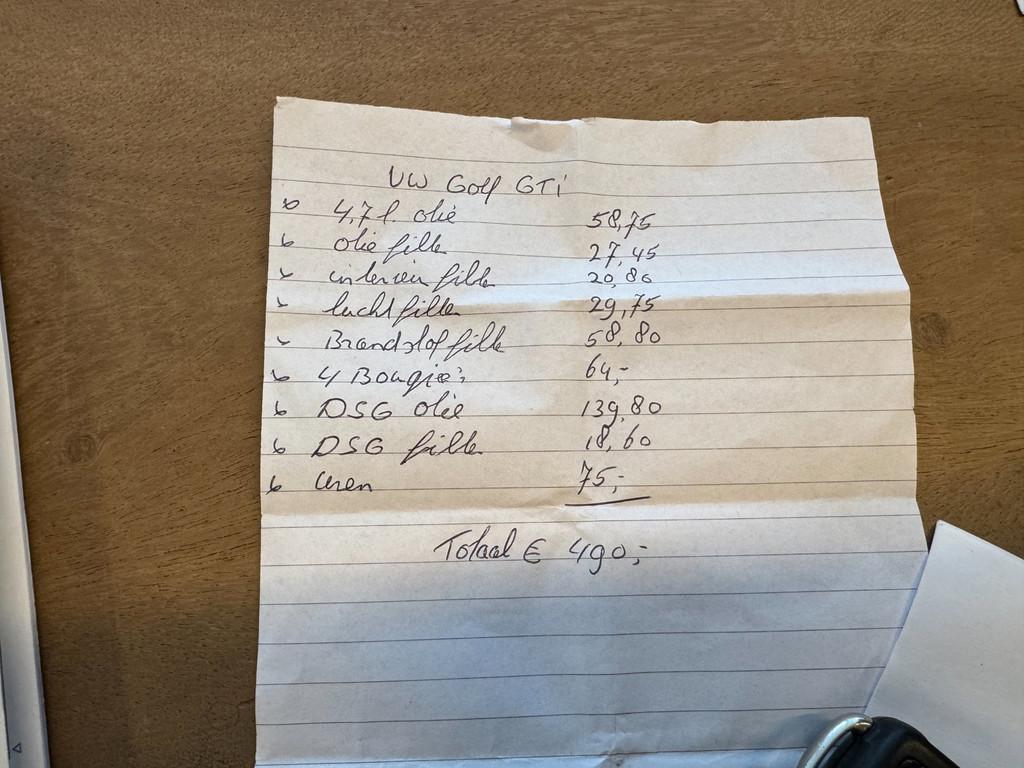 VW Golf GTi
4,7 l. olie 58,75
olie filter 27,45
interieur filter 20,80
lucht filter 29,75
Brandstof filter 58,80
4 Bougie's 64,-
DSG olie 139,80
DSG filter 18,60
Uren 75,-
Totaal € 490,-